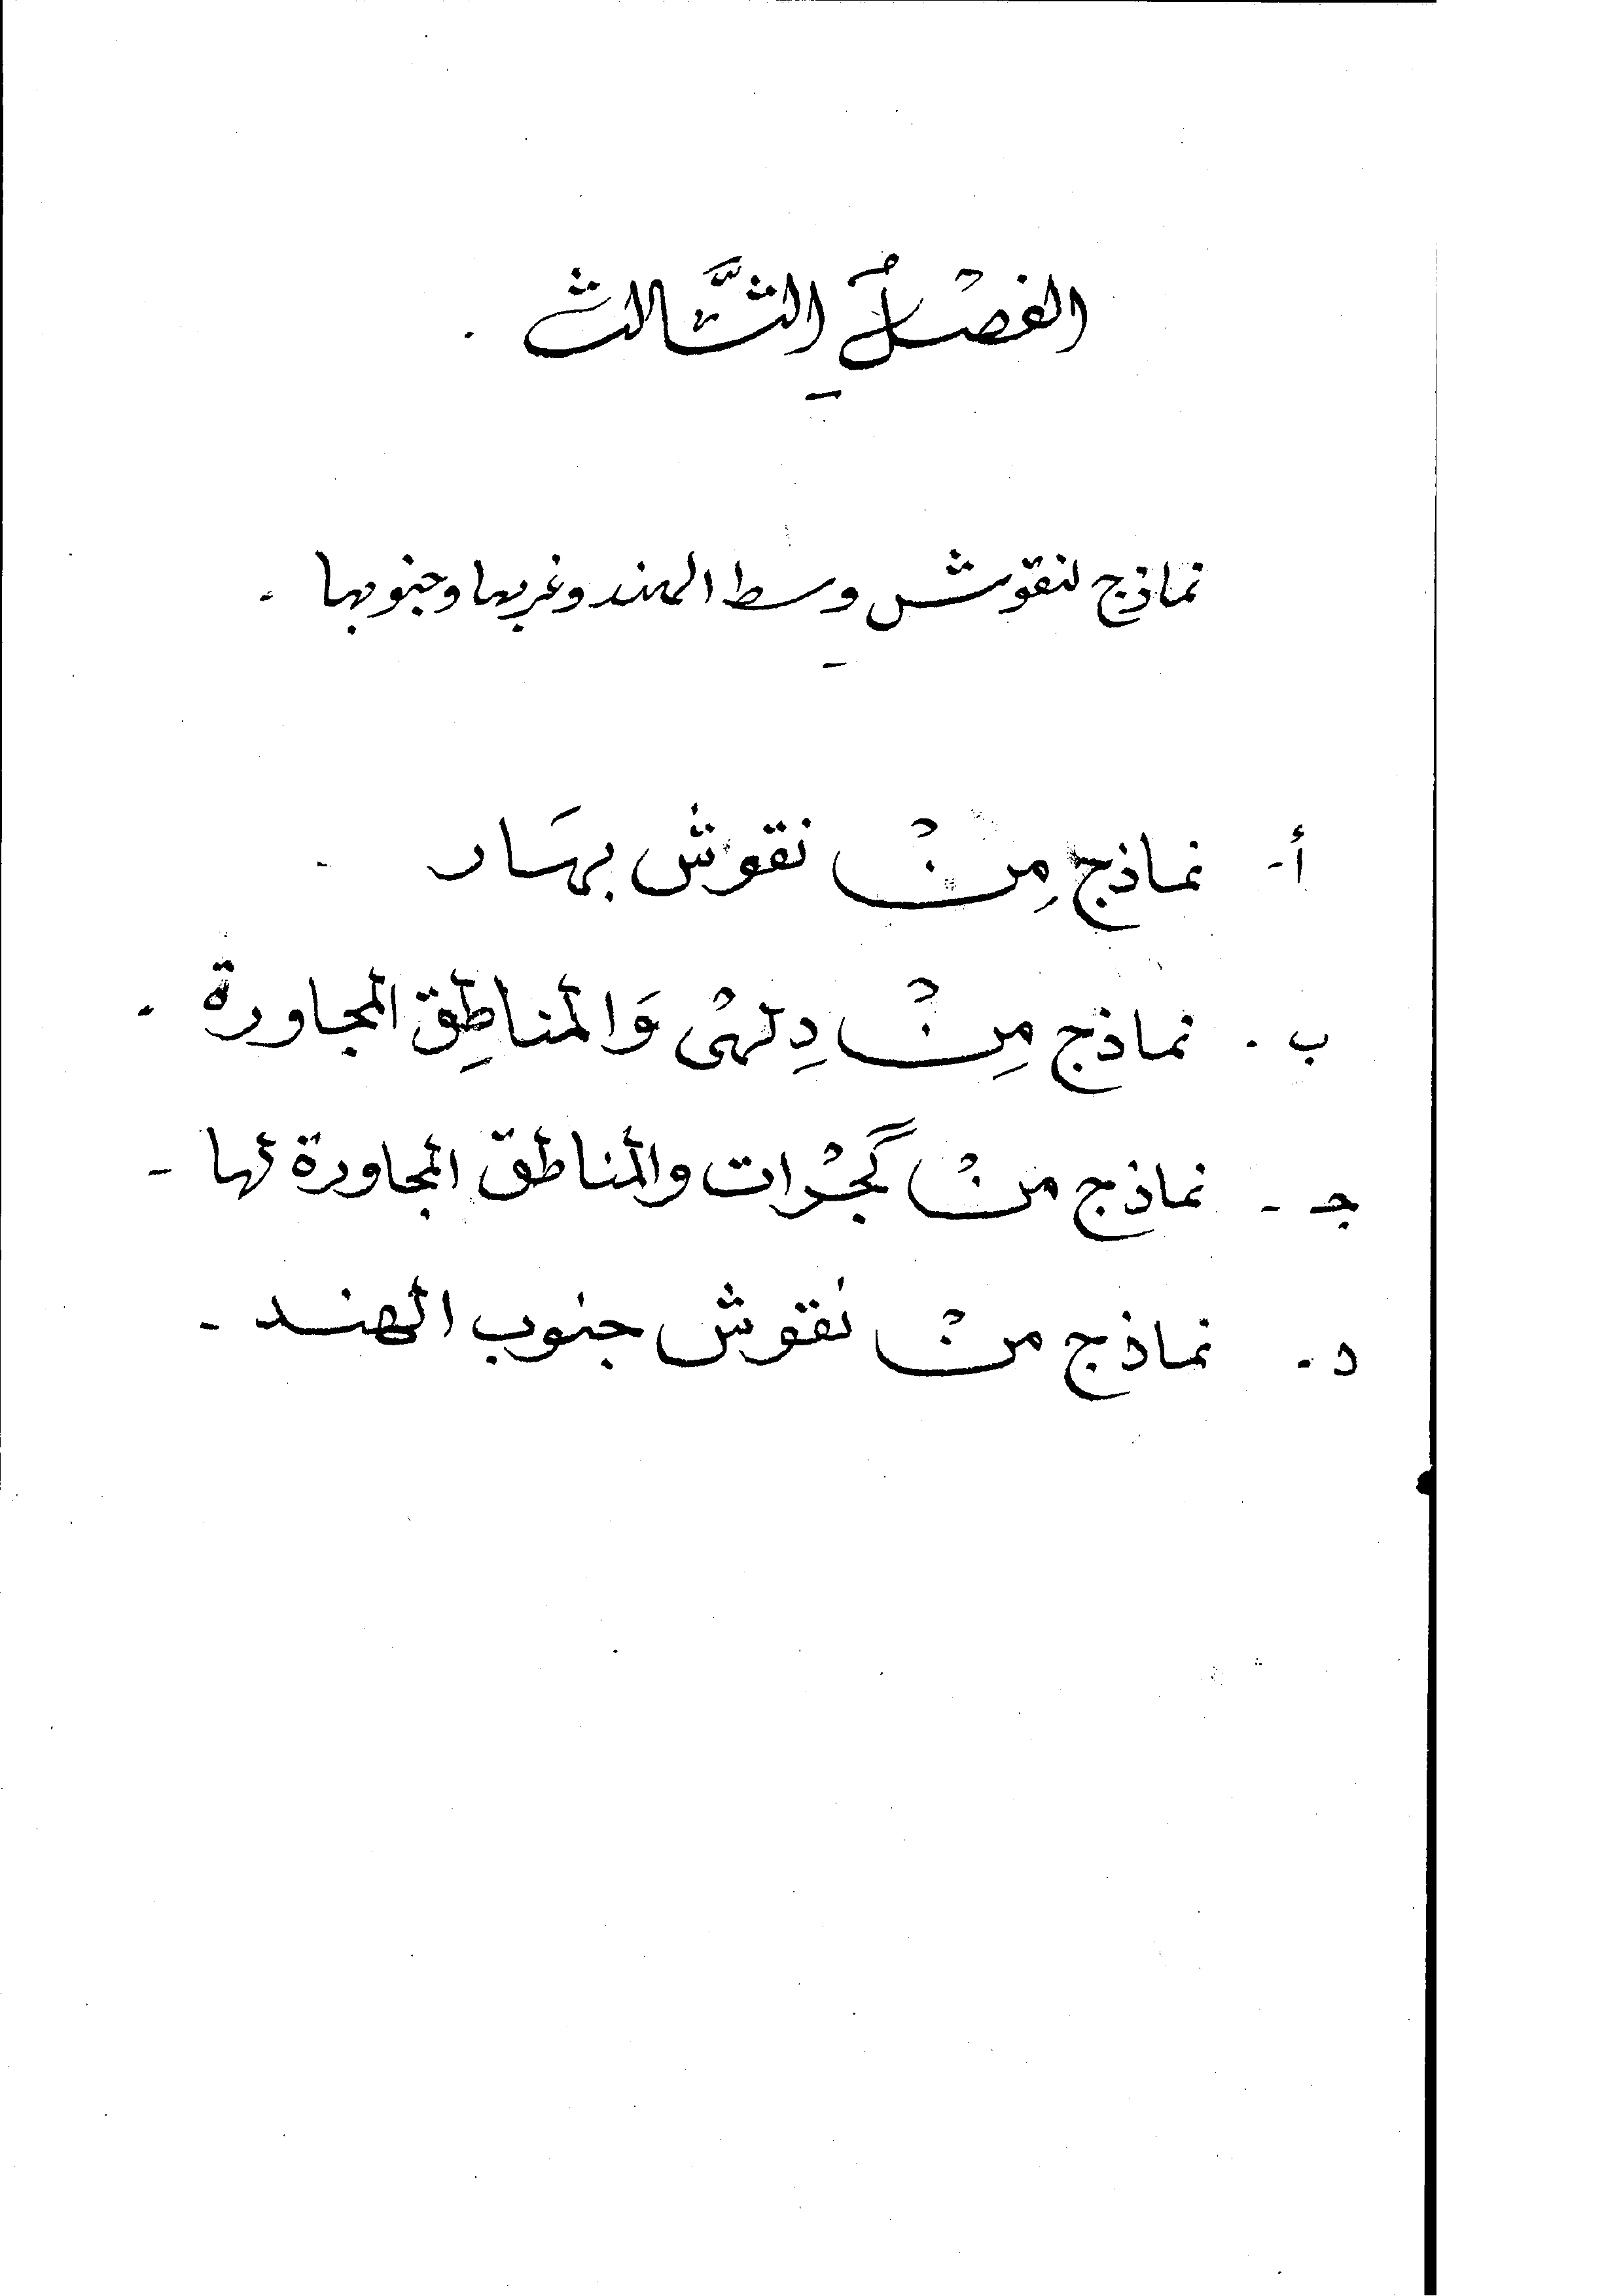 الفصْلُ الثَّالث .
نماذج لنقوش وسط الهند وغربها وجنوبها .
أ- نماذج مِنْ نقوش بهَار -
ب . نماذج مِنْ دِلهْى وَالمناطِق المجاورة .
جـ - نماذج منْ گجْرات والمناطق المجاورة لها -
د . نماذج منْ نقوش جنوب الهند -